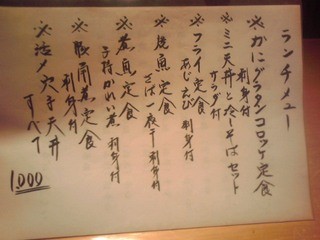 ランチメニュー
※かにグラタンコロッケ定食
刺身付
※ミニ天丼と冷しそばセット
サラダ付
※フライ定食
あじ えび 刺身付
※焼魚定食
さば一夜干 刺身付
※煮魚定食
子持かれい煮 刺身付
※豚角煮定食
刺身付
※活〆穴子天丼
すべて
1,000